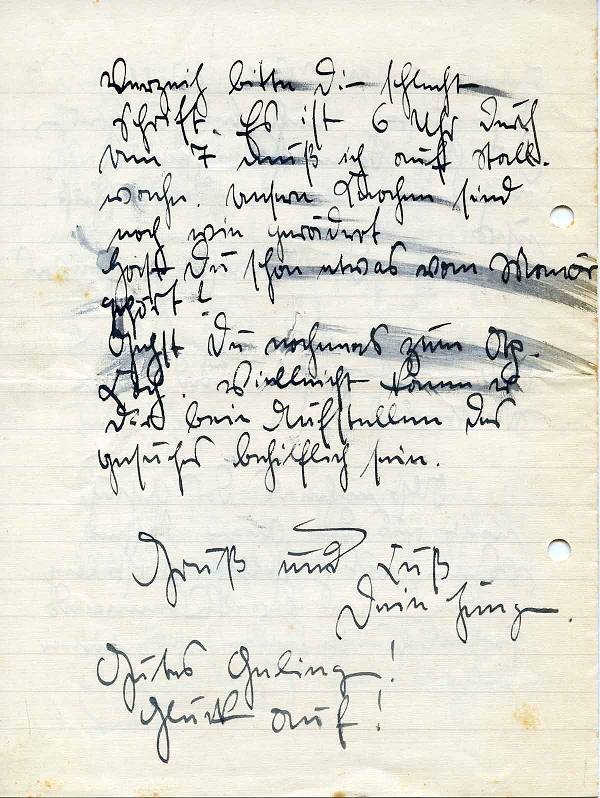 Verzeih bitte die schlecht
Schrift. Es ist 6 Uhr durch
um 7 muß ich auf Stall-
wache. Unsere Knochen sind
noch wie gerädert
Hast Du schon etwas vom Monör
gehört?
Gehst Du nochmals zum
Vielleicht kann er
Dir beim Aufstellen des
gesuches behilflich sein.
Gruß und Kuß
Dein Jung
Gutes Geling!
Glück auf!